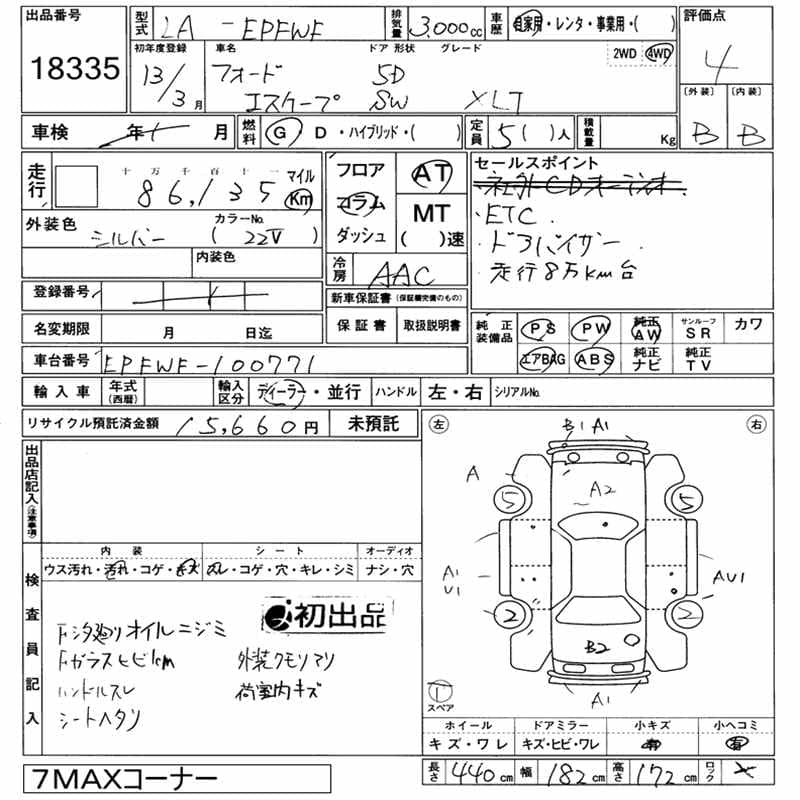 出品番号 18335
型式 LA - EPFWF 排気量 3,000cc 車歴 自家用・レンタ・事業用・( )
初年度登録 13/3月 車名 フォード エスケープ ドア 形状 5D SW グレード XLT 2WD 4WD
評価点 4
〔外装〕 B 〔内装〕 B
車検 年 月 燃料 G D・ハイブリッド・( ) 定員 5( )人 積載量 Kg
走行 十万千百十一 86,135 マイル Km
外装色 シルバー カラーNo. ( 22V )
内装色
フロア コラム ダッシュ AT MT ( )速
冷房 AAC
セールスポイント
・ETC
・ドアバイザー
・走行8万km台
登録番号
新車保証書 (保証継続完備のもの)
保証書 取扱説明書
名変期限 月 日迄
純正装備品 PS PW 純正AW サンルーフSR カワ
エアBAG ABS 純正ナビ 純正TV
車台番号 EPFWF-100771
輸入車 年式(西暦) 輸入区分 ディーラー・並行 ハンドル 左・右 シリアルNo.
リサイクル預託済金額 15,660円 未預託
出品店記入(注意事項)
検査員記入
内装 シート オーディオ
ウス汚れ・汚れ・コゲ・キズ スレ・コゲ・穴・キレ・シミ ナシ・穴
初出品
Fシタ廻りオイルニジミ
Fガラスヒビ1cm 外装クモリアリ
ハンドルスレ 荷室内キズ
シートヘタリ
左 右
B1 A1
A A2
5 5
A1 U1 AU1
2 2
B2
A1
1 スペア
ホイール ドアミラー 小キズ 小ヘコミ
キズ・ワレ キズ・ヒビ・ワレ 有 有
長さ 440cm 幅 182cm 高さ 172cm ロック
7MAXコーナー